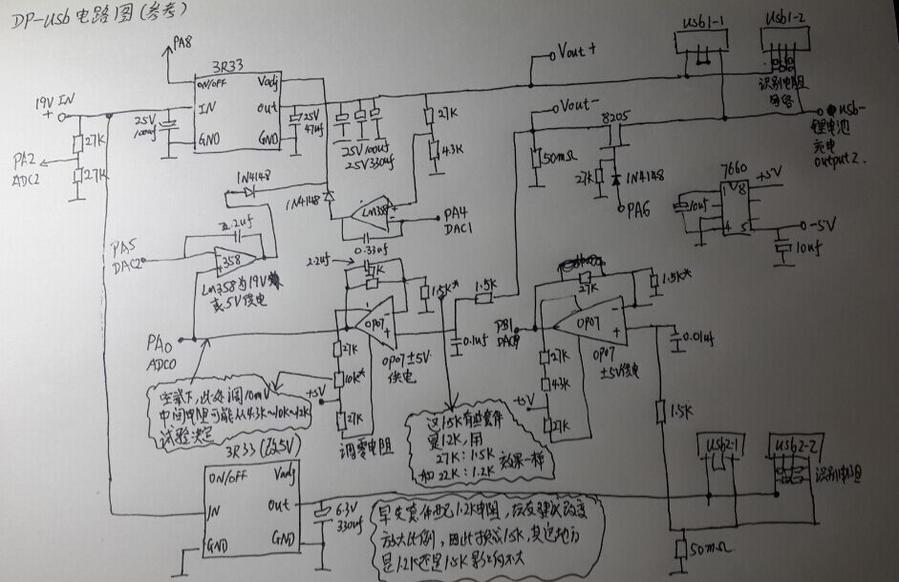 DP-USB电路图(参考)
PA8
3R33
ON/OFF
Vadj
IN
Out
GND
GND
19V IN
+
25V
100uf
25V
47uf
27K
27K
PA2
ADC2
25V100uf
25V330uf
27K
43K
Vout+
Vout-
usb1-1
usb1-2
识别电阻
网络
usb-
锂电池
充电
output2.
50mΩ
8205
27K
1N4148
PA6
7660
1
8
4
5
10uf
+5V
-5V
10uf
1N4148
1N4148
LM358
+
-
0.33uf
PA4
DAC1
PA5
DAC2
2.2uf
358
LM358为19V
或5V供电
PA0
ADC0
2.2uf
1K
1.5K*
1.5K
-
+
OP07
OP07±5V
供电
0.1uf
27K
10K*
+5V
27K
调零电阻
PB1
27K
1.5K*
-
+
OP07
OP07
±5V供电
0.01uf
27K
43K
+5V
27K
1.5K
空载下,此处调10mV
中间电阻可能从43K~10K~12K
试验决定
这1.5K有些套件
是1.2K,用
27K:1.5K
和22K:1.2K效果一样
3R33(改5V)
ON/OFF
Vadj
Out
IN
GND
GND
6.3V
330uf
早先套件配1.2K电阻,
放大比例,因此换成1.5K,其它地方
是1.2K还是1.5K影响不大
usb2-1
usb2-2
识别电阻
50mΩ